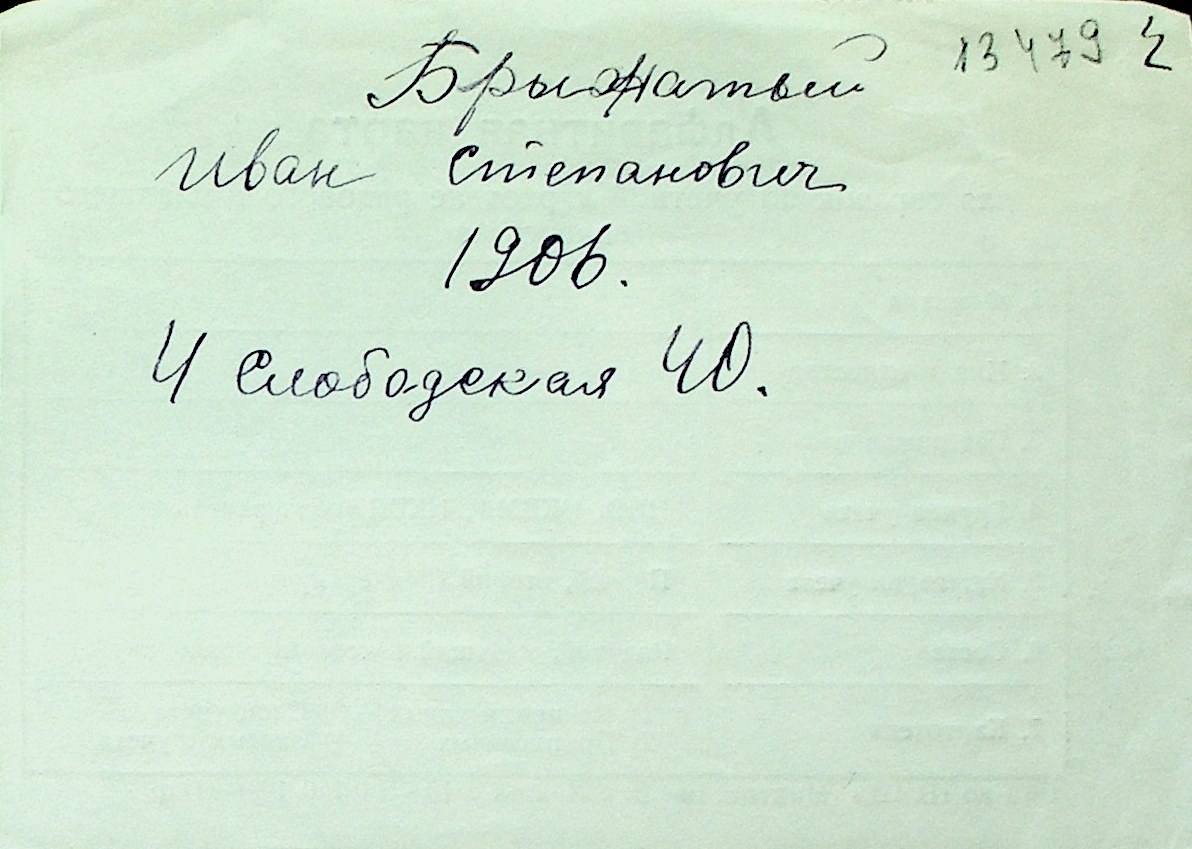 13479 г
Брыжатый
Иван Степанович
1906.
4 Слободская 40.